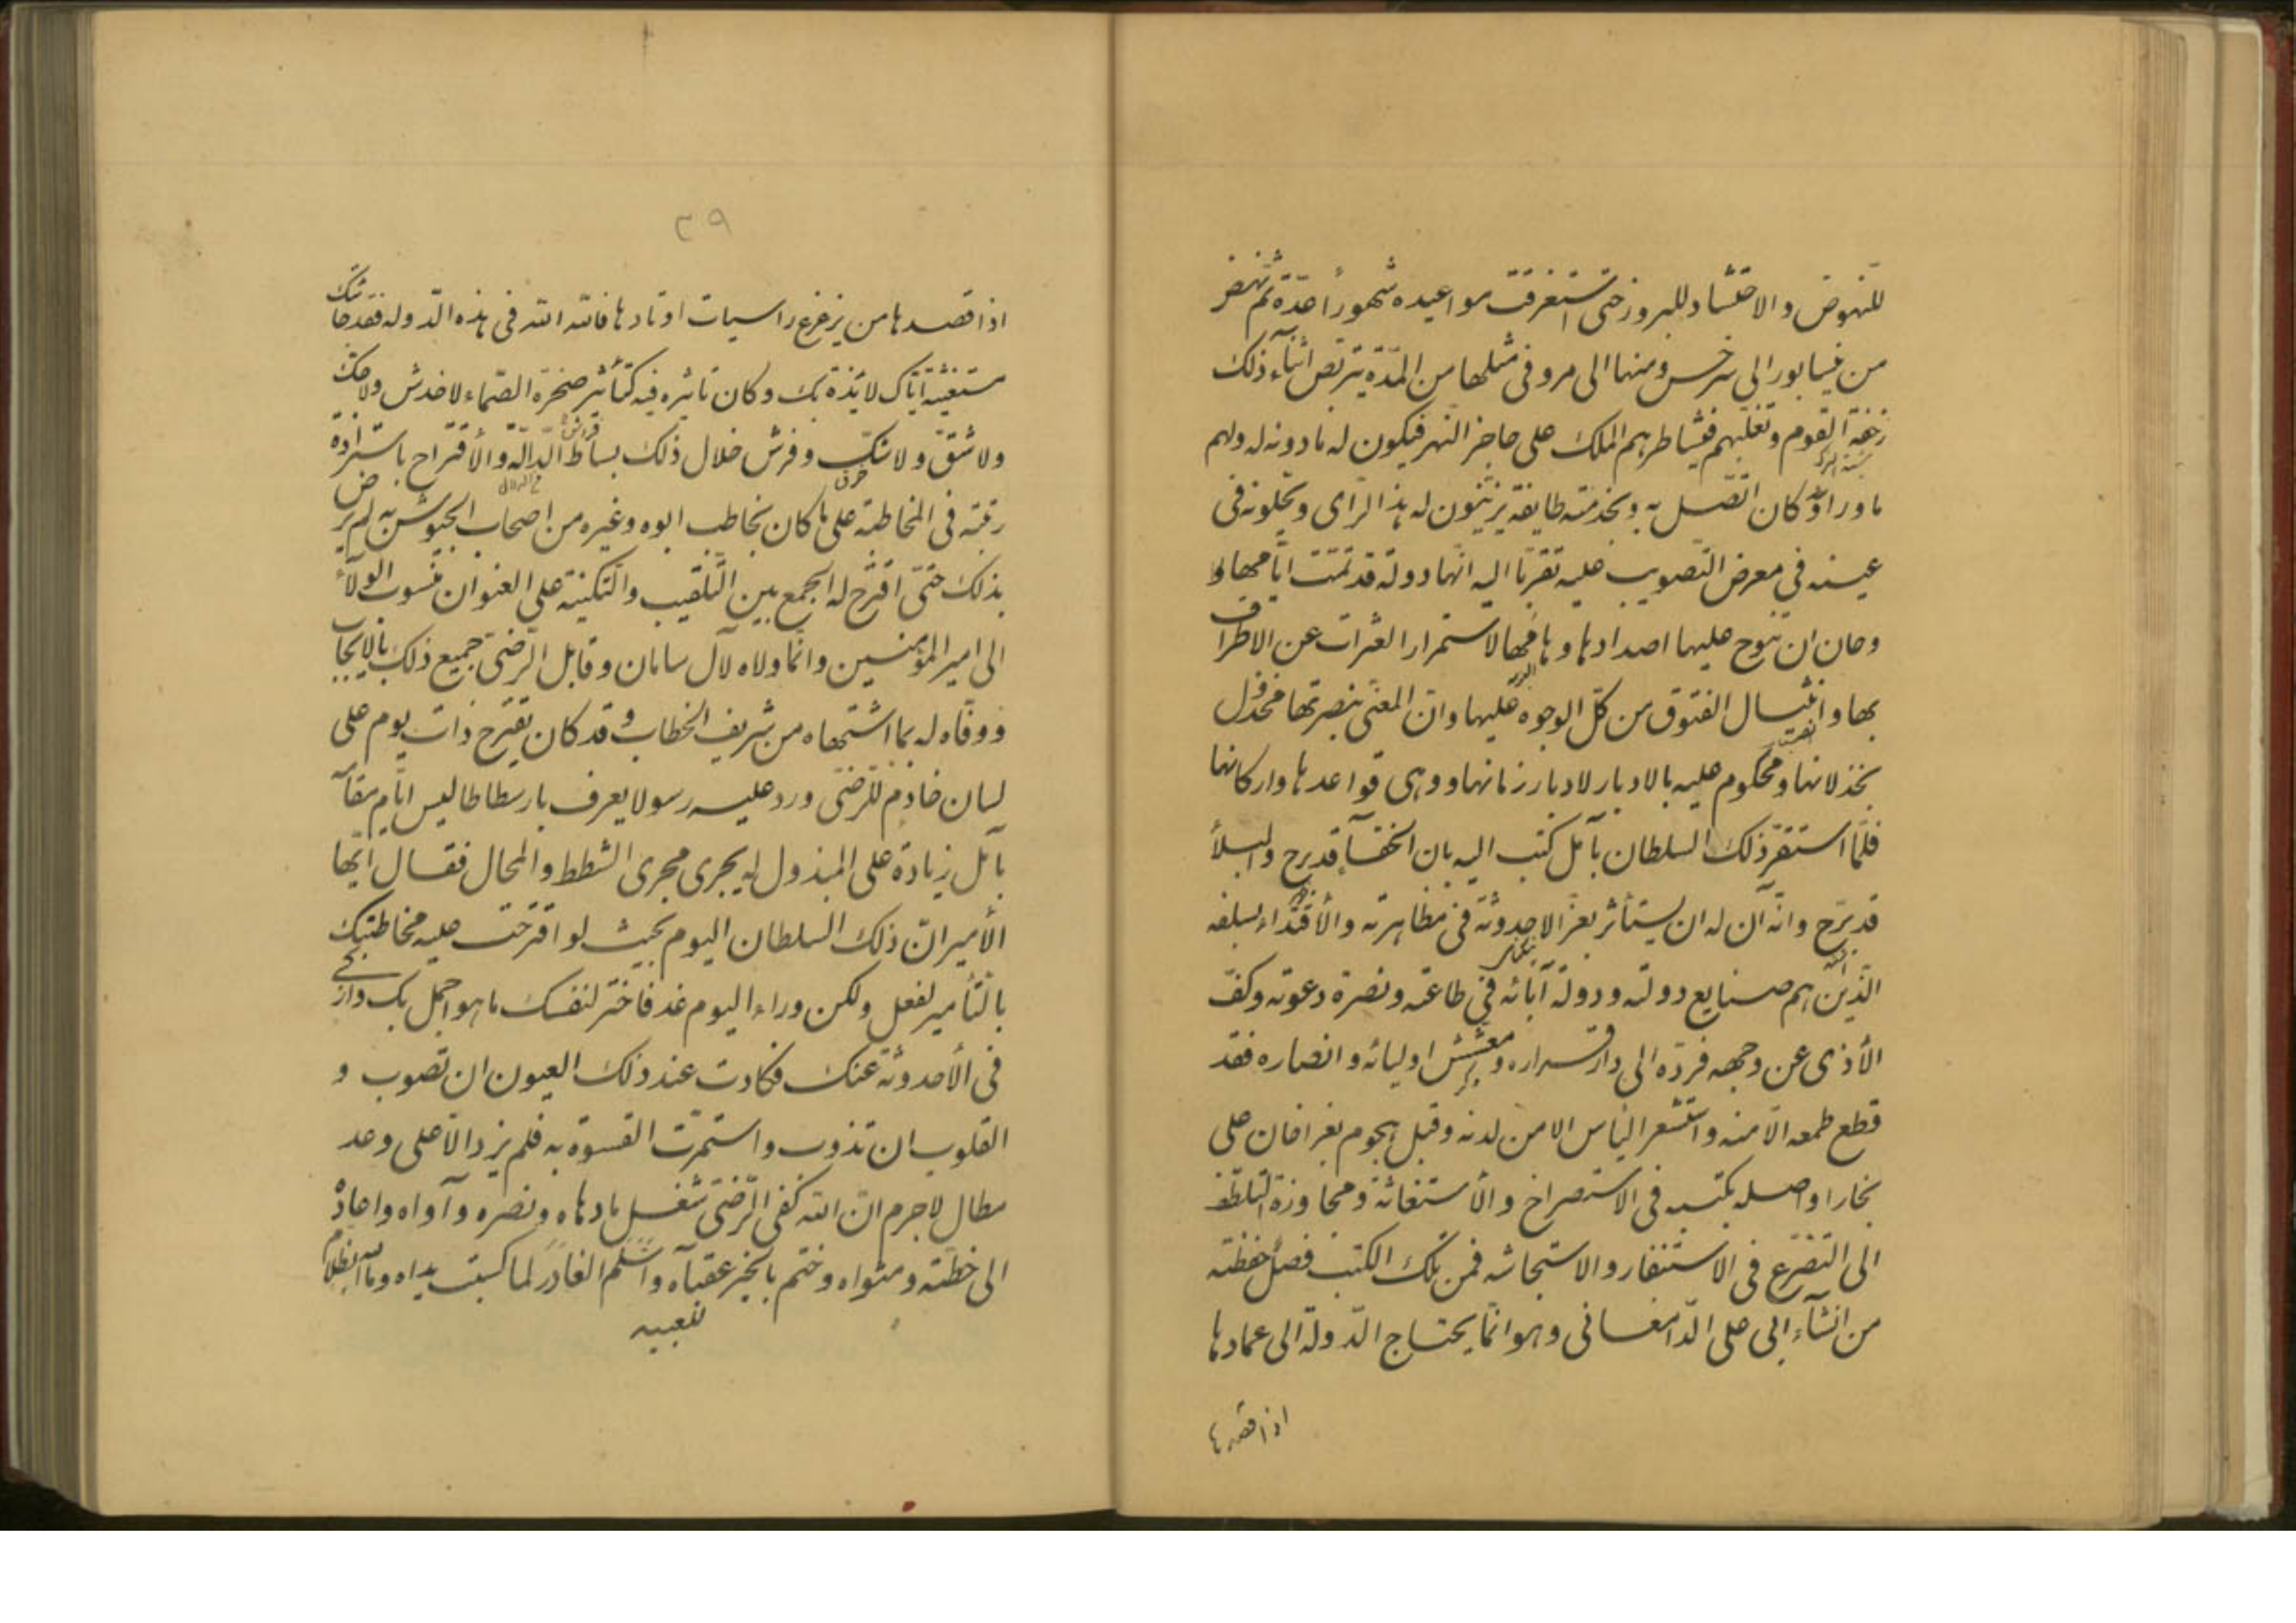 للنهوض والاحتشاد للبروز حتى استغرقت مواعيده شهوراً عدة ثم نهض
من نيسابور الى سرخس ومنها الى مرو فى مثلها من المدّة يتربص اثناء ذلك
زحفة القوم وتغلبهم فيشاطرهم الملك على حاجز النهر فيكون له مادونه له ولهم
ماوراؤه كان اتصل به وبخدمته طايفة يزينون له هذا الرّاى ويجلونه فى
عينه فى معرض التصويب عليه تقرباً اليه انّها دولة قد تمّت ايّامها و
وحان ان تنوح عليها اصداؤها وهامها لاستمرار العثرات عن الاطراف
بها وانثيال الفتوق من كلّ الوجوه عليها وان المعنىّ بنصرتها مخذول
بخذلانها ومحكوم عليه بالادبار لادبار زمانها ووهى قواعدها واركانها
فلمّا استقرّ ذلك السلطان بآمل كتب اليه بان الخفاء قد برح والبلاء
قد برّح وانّه آن له ان يستأثر بعزّ الاحدوثة فى مظاهرته والأقتداء بسلفه
الذين هم صنايع دولته ودولة آبائه فى طاعته ونصرة دعوته وكفّ
الأذى عن وجهه فردّه الى دار قراره ومعشّش اوليائه وانصاره فقد
قطع طمعه الّا منه واستشعر الياس الا من لدنه وقبل هجوم بغراخان على
بخارا واصله بكتبه فى الاستصراخ والأستغاثة ومجاوزة التلطّف
الى التضرّع فى الاستنفار والاستجاشه فمن تلك الكتب فصل حفظته
من انشاء ابى على الدّامغانى وهو انّما يحتاج الدّولة الى عمادها
اذا قصدها
٢٩
اذا قصدها من يزعزع راسيات اوتادها فالله الله فى هذه الدّوله فقد جاءتك
مستغيثة ايّاك لايذة بك وكان تاثيره فيه كتأثير صخرة الصّماء لا خدش ولا حكّ
ولا شقّ ولا شكّ وفرش خلال ذلك بساط الدّالّة والأقتراح باستزادة
رتبته فى المخاطبة على ما كان يخاطب ابوه وغيره من اصحاب الجيوش به لم يرض
بذلك حتّى اقترح له الجمع بين التّلقيب والتكنية على العنوان منسوب الولاء
الى امير المؤمنين وانّما ولاه لآل سامان وقابل الرّضىّ جميع ذلك بالايجاب
ووفّاه له بما اشتهاه من شريف الخطاب وقد كان يقترح ذات يوم على
لسان خادم للرّضىّ ورد عليه رسولا يعرف بارسطاطاليس ايّام مقامه
بآمل زيادة على المبذول له يجرى مجرى الشطط والمحال فقال ايّها
الأمير انّ ذلك السلطان اليوم بحيث لو اقترحت عليه مخاطبتك
بالتأمير لفعل ولكن وراء اليوم غد فاختر لنفسك ما هو اجمل بك وازكى
فى الأحدوثة عنك فكادت عند ذلك العيون ان تصوب و
القلوب ان تذوب واستمرّت القسوة به فلم يزد الّا على وعد
مطال لاجرم انّ الله كفى الرّضىّ شغل ما دهاه ونصره وآواه واعاده
الى خطّته ومثواه وختم بالخير عقباه واسلم الغادر لما كسبت يداه وما الله بظلام
للعبيد